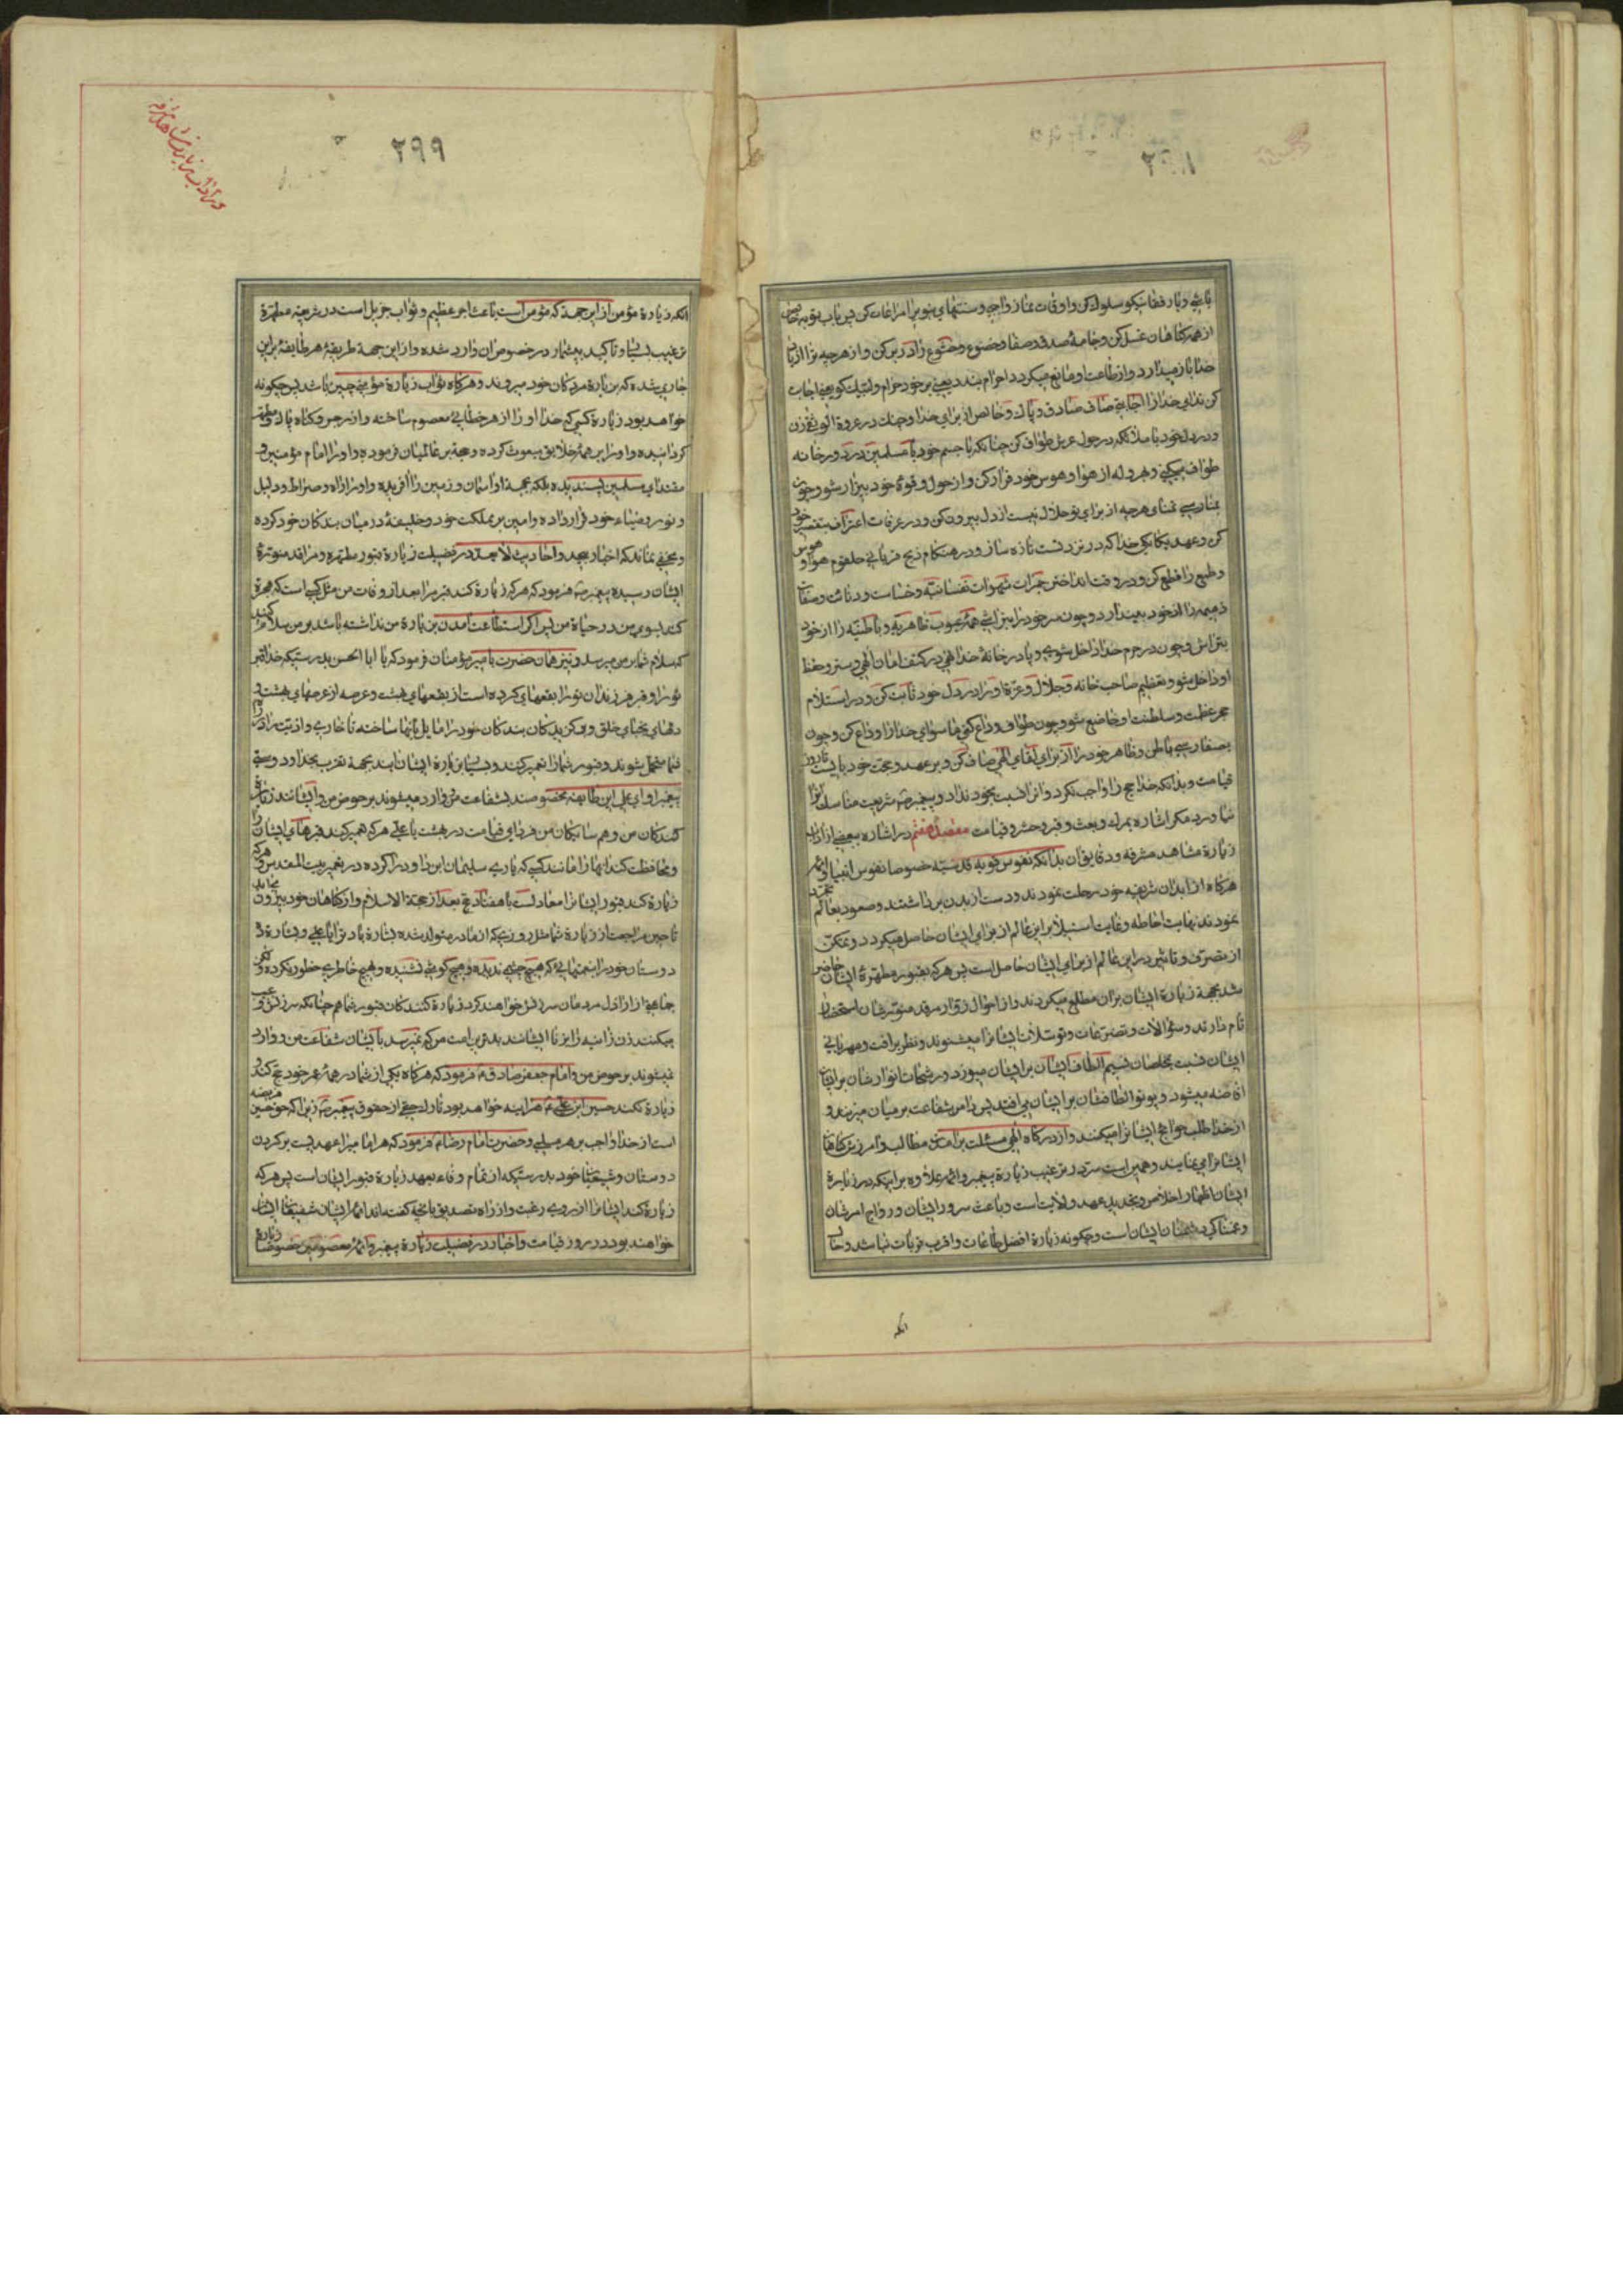 باشی و با رفقا نیکو سلوک کن و اوقات نماز واجبه و سنتهای نبوی را مراعات کن پس بآب توبه خالص
از همه گناهان غسل کن و جامهٔ صدق و صفا و خضوع و خشوع را در بر کن و از هر چه ترا از یاد
خدا باز میدارد و از طاعت او مانع میگردد احرام بند یعنی بر خود حرام و لبیک گو یعنی اجابت
کن ندای خدا را اجابتی صاف صادق و پاک و خالص از برای خدا و چنک در عروة الوثقی زن
و در دل خود با ملائکه در حول عرش طواف کن چنانکه با جسم خود با مسلمین در دور خانه
طواف میکنی و هروله از هوا و هوس خود فرار کن و از حول و قوهٔ خود بیزار شو و چون
بمنا رسی تمنای هر چه از برای تو حلال نیست از دل بیرون کن و در عرفات اعتراف بتقصیر خود
کن و عهد یکانگی خدا که در نزد تست تازه ساز و در هنکام ذبح قربانی حلقوم هوا و هوس
و طمع را قطع کن و در وقت انداختن جمرات شهوات نفسانیه و خساست و دنائت و صفات
ذمیمه را از خود بینداز و چون سر خود را بتراشی همهٔ عیوب ظاهریه و باطنیه را از خود
بتراش و چون در حرم خدا داخل شوی و پا در خانهٔ خدا نهی در کنف امان الهی و ستر و حفظ
او داخل شو و بتعظیم صاحب خانه و جلال و عزة او را در دل خود ثابت کن و در استلام
حجر عظمت و سلطنت او خاضع شو و چون طواف وداع کنی ما سوای خدا را وداع کن و چون
بصفا رسی باطن و ظاهر خود را از برای لقای الهی صاف کن و بر عهد و محبت خود بایست تا روز
قیامت و بدانکه خدا حج را واجب نکرد و آنرا نسبت بخود نداد و پیغمبر ص شریعت مناسک آنرا
نیاورد مکر اشاره بمرک و بعث و قبر و حشر و قیامت مقصد هفتم در اشاره ببعضی از آداب
زیارة مشاهد مشرفه و دقایق آن بدانکه نفوس قویه قدسیه خصوصا نفوس انبیا و ائمه
هرکاه از ابدان شریفه خود رحلت نمودند و دست از بدن برداشتند و صعود بعالم تجرد
نمودند نهایت احاطه و غایت استیلا بر این عالم از برای ایشان حاصل میکردد و تمکن
از تصرف و تاثیر در این عالم از برای ایشان حاصل است پس هر که بقبور مطهرهٔ ایشان حاضر
شد بجهة زیارة ایشان بر آن مطلع میکردند و از احوال زوار مرقد منورشان استحضار
تام دارند و سؤالات و تضرعات و توسلات ایشانرا میشنوند و نظر برافت و مهربانی
ایشان نسبت بمخلصان نسیم الطاف ایشان بر ایشان میوزد و رشحات انوارشان بر ایشان
افاضه میشود و پرتو الطافشان بر ایشان می افتد پس دامن شفاعت بر میان میزنند و
از خدا طلب حوائج ایشانرا میکنند و از درکاه الهی مسئلت برآمدن مطالب و آمرزش کناهان
ایشانرا می نمایند و همین است سرّ در ترغیب زیارة پیغمبر و ائمه علاوه بر اینکه در زیارة
ایشان اظهار اخلاص و تجدید عهد ولایت است و باعث سرور ایشان و رواج امرشان
و غمناکی دشمنان ایشان است و چکونه زیارة افضل طاعات و اقرب قربات نباشد و حال
آنکه
۲۹۹
آنکه زیارة مؤمن از این جهت که مؤمن است باعث اجر عظیم و ثواب جزیل است در شریعت مطهرة
ترغیب بسیار و تاکید بیشمار در خصوص آن وارد شده و از این جهة طریقهٔ هر طایفهٔ بر این
جاری شده که بزیارة مردکان خود میروند و هرکاه ثواب زیارة مؤمنی چنین باشد پس چکونه
خواهد بود زیارة کسی که خدا او را از هر خطائی معصوم ساخته و از رجس و کناه پاک و مطهر
کردانیده و او را بر همهٔ خلایق مبعوث کرده و حجة بر عالمیان فرموده و او را امام مؤمنین و
مقتدای مسلمین پسندیده بلکه بجهة او آسمان و زمین را آفریده و او را راه و صراط و دلیل
و نور و ضیاء خود قرار داده و امین بر مملکت خود و خلیفهٔ در میان بندکان خود کرده
و مخفی نماند که اخبار بیحد و احادیث لا تعد در فضیلت زیارة قبور مطهره و مراقد منورة
ایشان رسیده پیغمبر ص فرمود که هر که زیارة کند قبر مرا بعد از وفات من مثل کسی است که هجرة
کند بسوی من در حیاة من پس اکر استطاعت آمدن بزیارة من نداشته باشد بر من سلام کند
که سلام شما بمن میرسد و نیز همان حضرت بامیر مؤمنان فرمود که یا ابا الحسن بدرستیکه خدا قبر
تو را و قبر فرزندان تو را بقعهای کرده است از بقعهای بهشت و عرصه از عرصهای بهشت و
دلهای نجبای خلق و برکزیدکان بندکان خود را مایل بآنها ساخته تا خواری و اذیت در راه
شما متحمل شوند و قبور شما را تعمیر کنند و بسیار بزیارة ایشان آیند بجهة تقرب بخدا و دوستی
پیغمبر او ای علی این طایفه مخصوصند بشفاعت من و وارد میشوند بر حوض من و ایشانند زیارة
کنندکان من و همسایکان من فردای قیامت در بهشت یا علی هر که تعمیر کند قبرهای ایشان را
و محافظت کند آنها را مانند کسی که یاری سلیمان بن داود را کرده در تعمیر بیت المقدس و هر که
زیارة کند قبور ایشانرا معادلست با هفتاد حج بعد از حجة الاسلام و از کناهان خود بیرون میآید
تا حین مراجعت از زیارة شما مثل روزیکه از مادر متولد شده بشارة باد ترا یا علی و بشارة ده
دوستان خود را بنعمتهائی که هیچ چشمی ندیده و هیچ کوشی نشنیده و بهیچ خاطری خطور نکرده و لکن
جماعتی از اراذل مردمان سرزنش خواهند کرد زیارة کنندکان قبور شما هم چنانکه سرزنش و عیب
میکنند زن زانیه را بزنا ایشانند بدترین امت من که نمیرسد بایشان شفاعت من و وارد
نمیشوند بر حوض من و امام جعفر صادق ع فرمود که هرکاه یکی از شما در همهٔ عمر خود حج کند و
زیارة نکند حسین ابن علی ع هر آینه خواهد بود تارک حقی از حقوق پیغمبر ص زیرا که حق حسین فریضه
است از خدا واجب بر هر مسلمی و حضرت امام رضا ع فرمود که هر امامیرا عهدیست بر کردن
دوستان و شیعیان خود بدرستیکه از تمام وفاء بعهد زیارة قبور ایشان است پس هر که
زیارة کند ایشانرا از روی رغبت و از راه تصدیق بآنچه کفته‌اند ائمه ایشان شفیعان ایشان
خواهند بود در روز قیامت و اخبار در فضیلت زیارة پیغمبر و ائمهٔ معصومین خصوصا زیارة